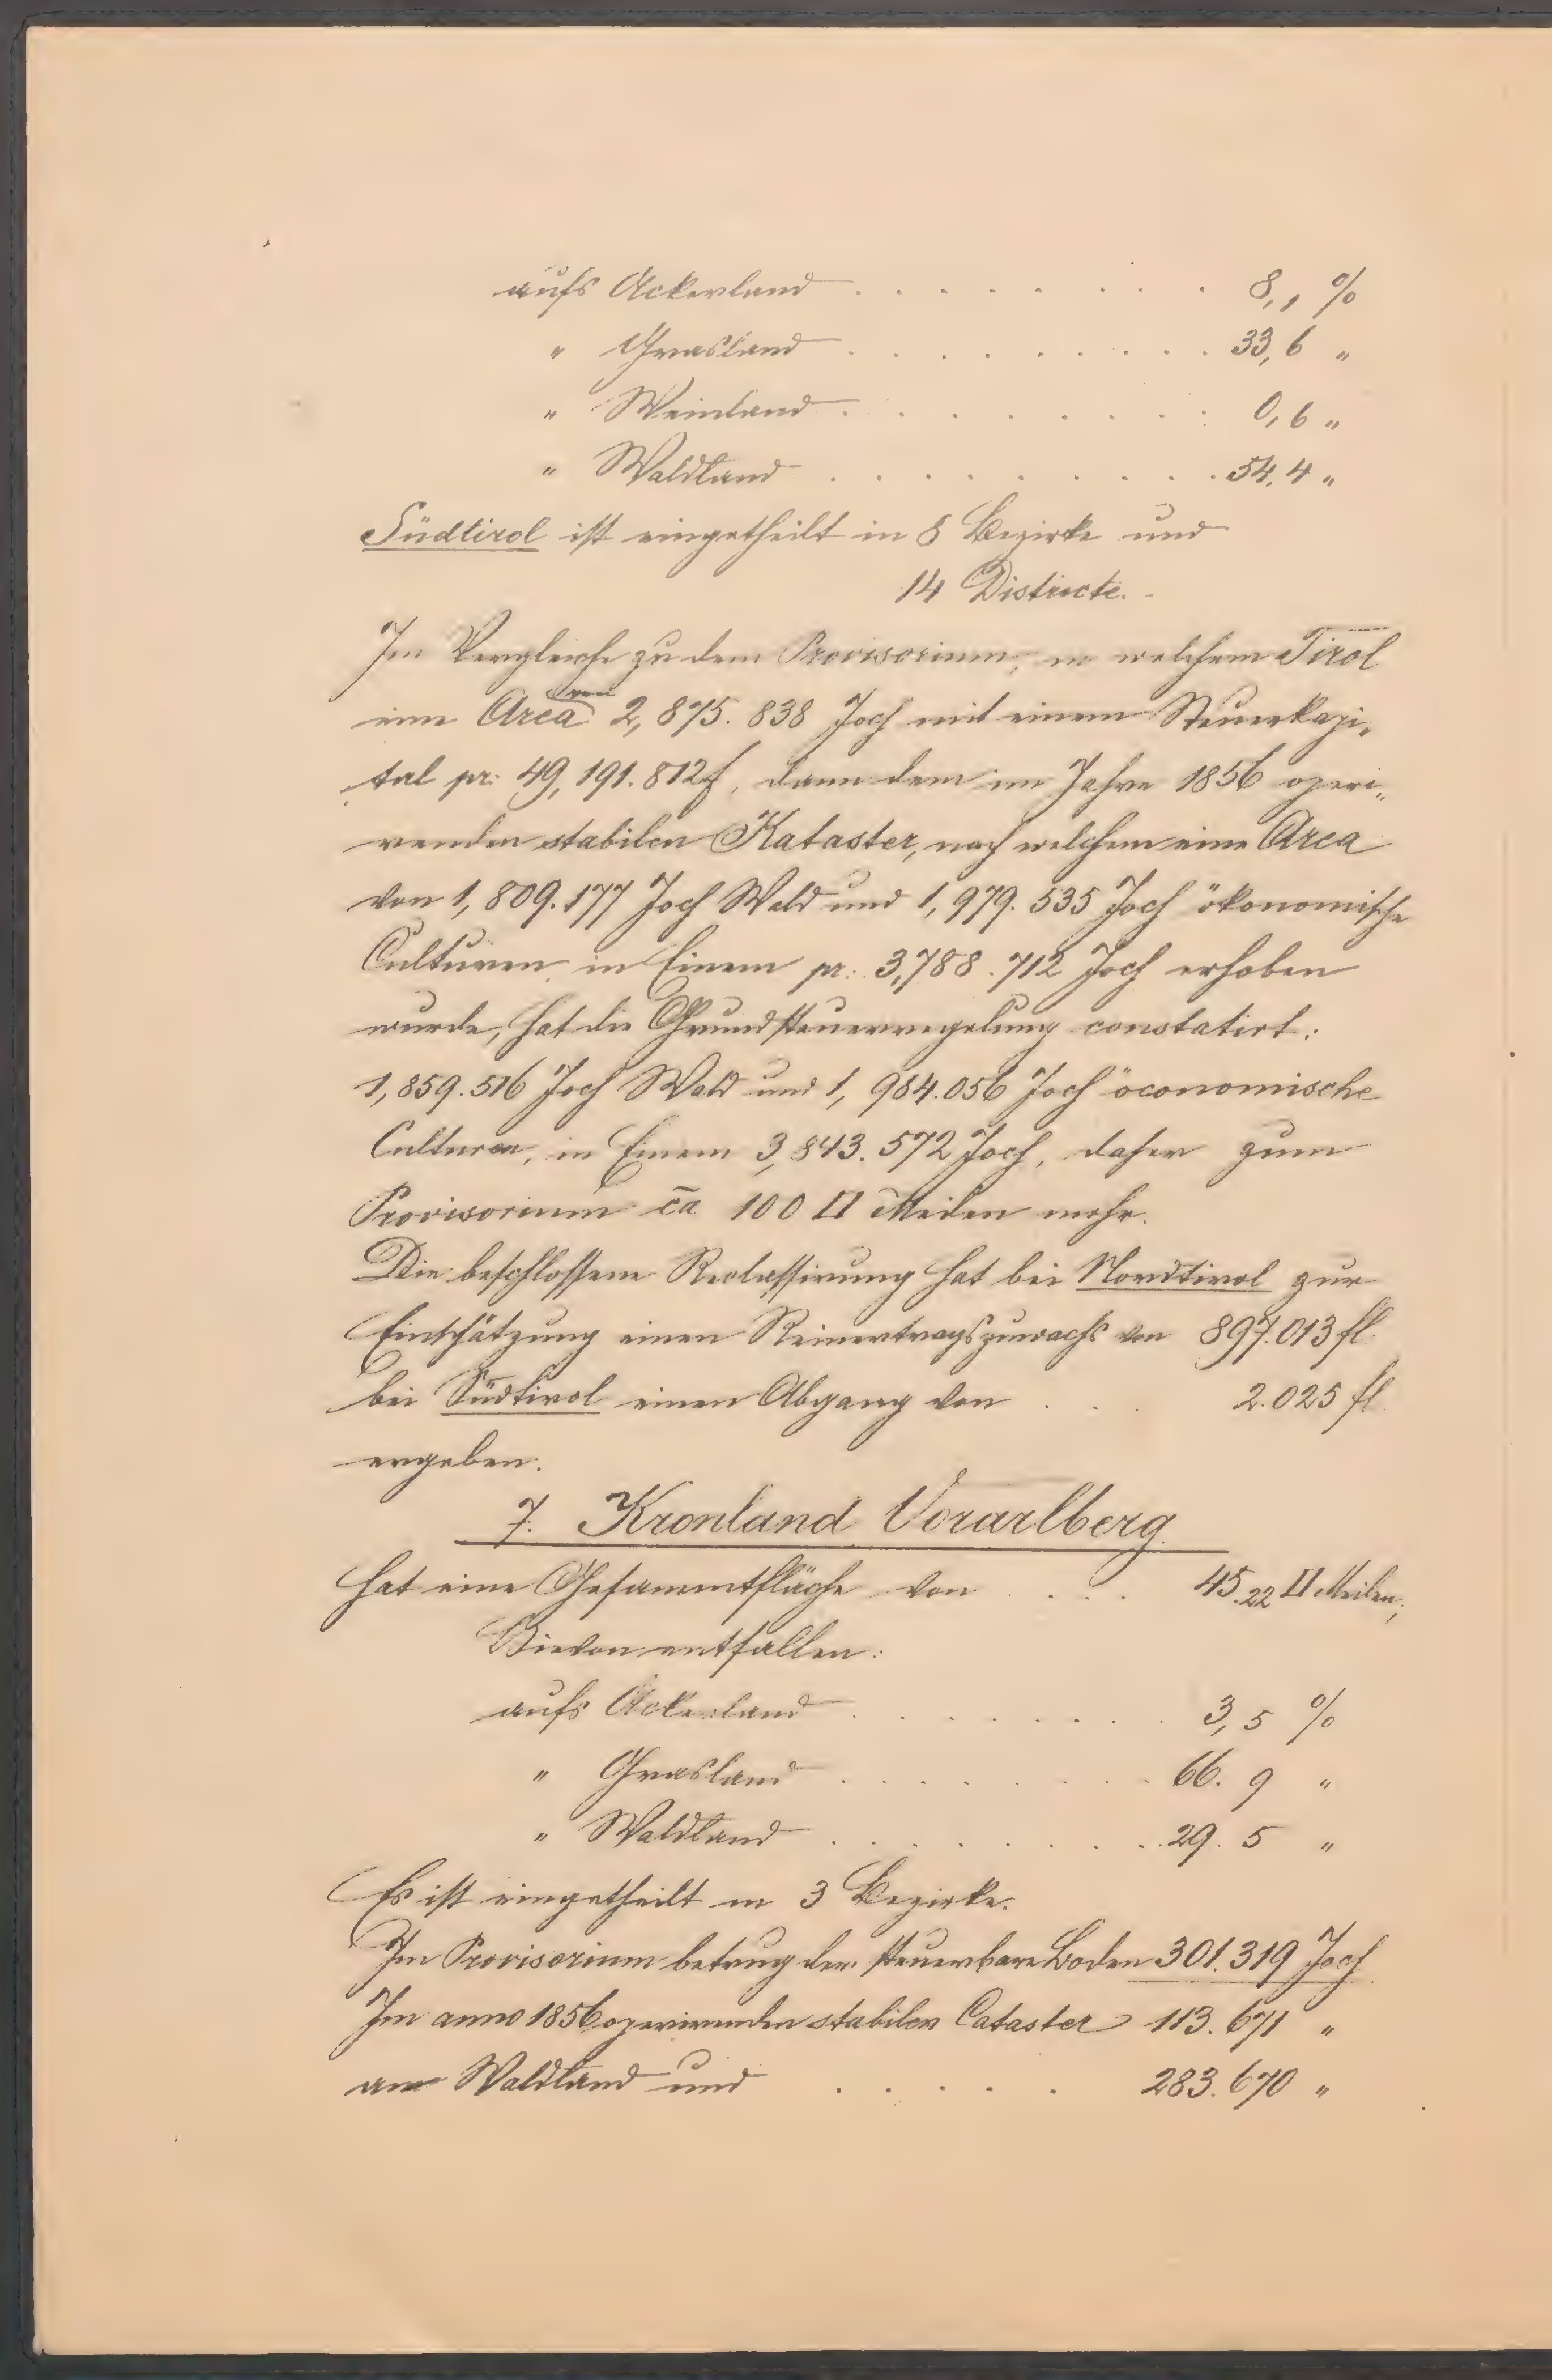 aufs Ackerland . . . . . . . . . 8,1 %
" Grasland . . . . . . . . . . 33,6 "
" Weinland . . . . . . . . . 0,6 "
" Waldland . . . . . . . . . . 54,4 "
Südtirol ist eingetheilt in 8 Bezirke und
14 Districte.
Im Vergleiche zu dem Provisorium, in welchem Tirol
eine Area von 2,875.838 Joch mit einem Steuerkapi„
tal pr. 49,191.812 f, dann dem im Jahre 1856 operi„
renden stabilen Kataster, nach welchem eine Area
von 1,809.177 Joch Wald und 1,979.535 Joch ökonomische
Culturen in Einem pr. 3,788.712 Joch erhoben
wurde, hat die Grundsteuerregelung constatirt:
1,859.516 Joch Wald und 1,984.056 Joch öconomische
Culturen, in Einem 3,843.572 Joch, daher zum
Provisorium ca 100 □ Meilen mehr.
Die beschlossene Reclassirung hat bei Nordtirol zur
Einschätzung einen Reinertragszuwachs von 897.013 fl.
bei Südtirol einen Abgang von . . . 2.025 fl
ergeben.
7. Kronland Vorarlberg
hat eine Gesammtfläche von . . . 45.22 □ Meilen;
Hievon entfallen:
aufs Ackerland . . . . . . . . 3,5 %
" Grasland . . . . . . . . 66.9 "
" Waldland . . . . . . . . . 29.5 "
Es ist eingetheilt in 3 Bezirke.
Im Provisorium betrug der steuerbare Boden 301.319 Joch
Im anno 1856 operirenden stabilen Cataster 113.671 "
am Waldland und . . . . . 283.670 "